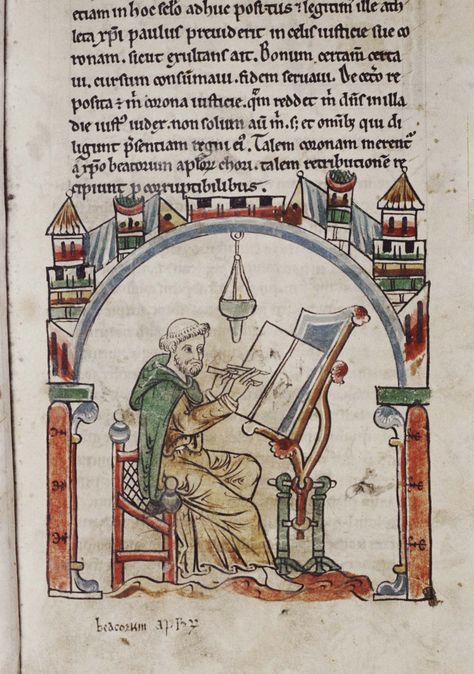 etiam in hoc sclo adhuc positus & legitim ille ath
leta xp̄i paulus previderit in celis iusticie sue co
ronam. sicut exultans ait. Bonum certam̄ certa
vi. cursum consūmavi. fidem servavi. De cet̄o re
posita ē m̄ corona iusticie. qm̄ reddet m̄ dn̄s in illa
die iust' iudex. non solum aū m̄. s; et om̄ib; qui di
ligunt p̄sentiam regni ei'. Talem coronam merent'
a xp̄o beatorum apl'or chori. talem retributionē re
cipiunt p corruptibilibus.
beatorum